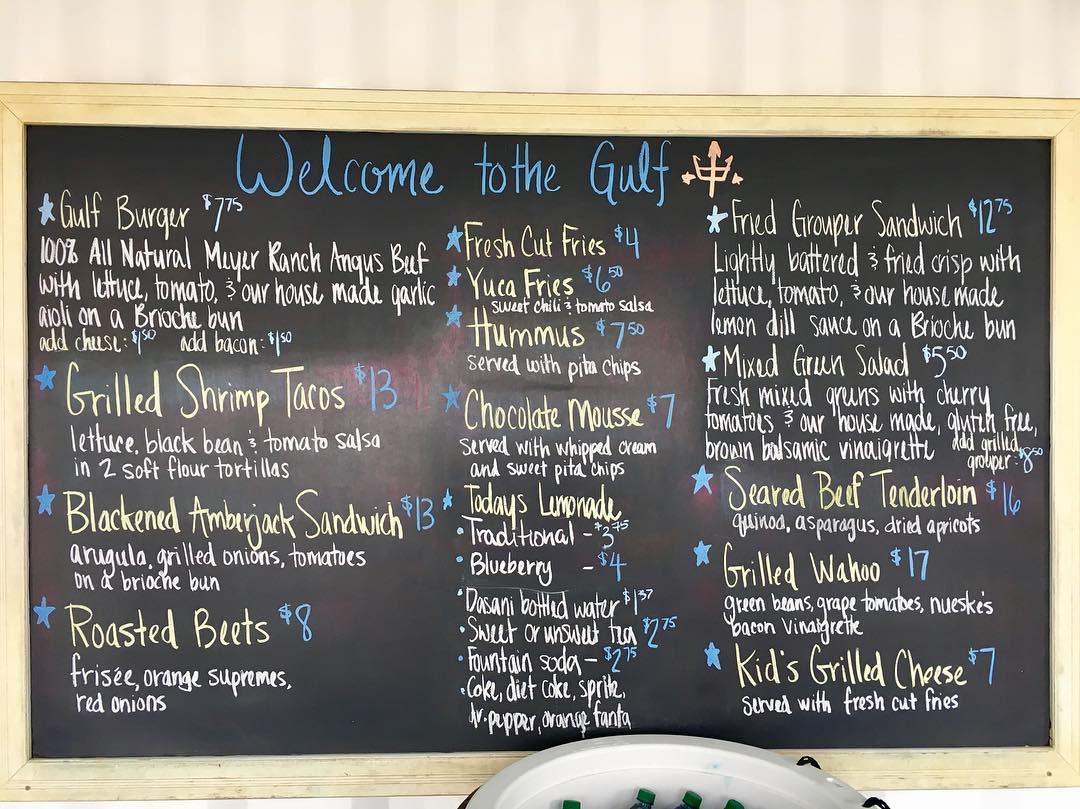 Welcome to the Gulf
Gulf Burger $7.75
100% All Natural Meyer Ranch Angus Beef
with lettuce, tomato, & our house made garlic
aioli on a Brioche bun
add cheese: $1.50 add bacon: $1.50
Grilled Shrimp Tacos $13
lettuce, black bean & tomato salsa
in 2 soft flour tortillas
Blackened Amberjack Sandwich $13
arugula, grilled onions, tomatoes
on a brioche bun
Roasted Beets $8
frisée, orange supremes,
red onions
Fresh Cut Fries $4
Yuca Fries $6.50
sweet chili & tomato salsa
Hummus $7.50
served with pita chips
Chocolate Mousse $7
served with whipped cream
and sweet pita chips
Todays Lemonade
Traditional - $3.75
Blueberry - $4
Dasani bottled water $1.37
Sweet or unsweet tea $2.75
Fountain soda - $2.75
Coke, diet coke, sprite,
dr. pepper, orange fanta
Fried Grouper Sandwich $12.75
Lightly battered & fried crisp with
lettuce, tomato, & our house made
lemon dill sauce on a Brioche bun
Mixed Green Salad $5.50
Fresh mixed greens with cherry
tomatoes & our house made, gluten free,
brown balsamic vinaigrette add grilled
grouper: $8.50
Seared Beef Tenderloin $16
quinoa, asparagus, dried apricots
Grilled Wahoo $17
green beans, grape tomatoes, nueske's
bacon vinaigrette
Kid's Grilled Cheese $7
served with fresh cut fries